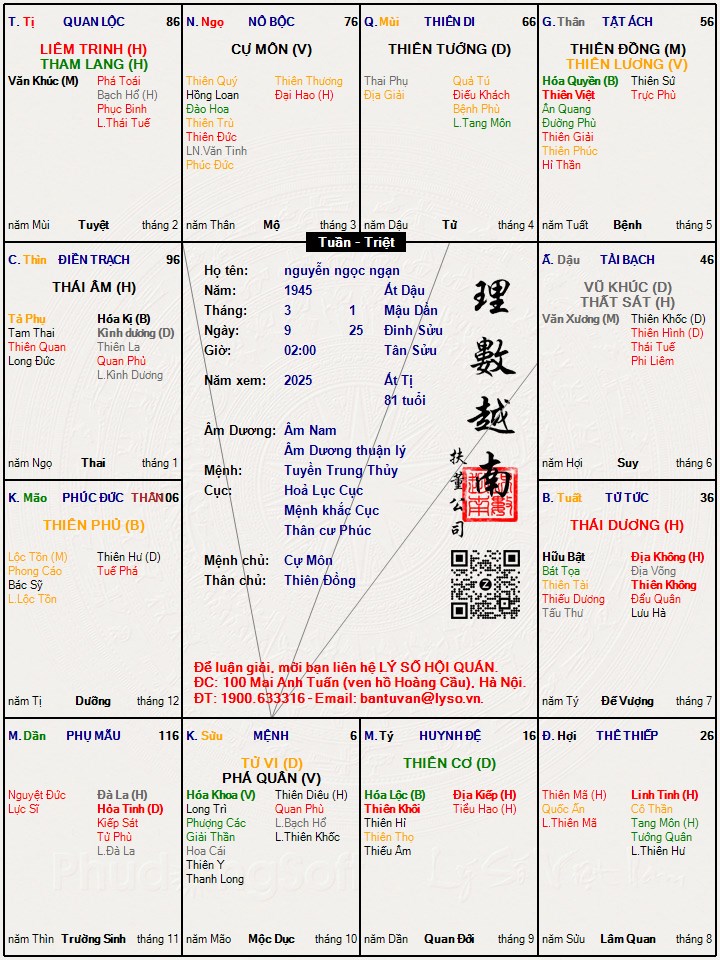 T. Tị QUAN LỘC 86
LIÊM TRINH (H)
THAM LANG (H)
Văn Khúc (M) Phá Toái
Bạch Hổ (H)
Phục Binh
L.Thái Tuế
năm Mùi Tuyệt tháng 2
N. Ngọ NÔ BỘC 76
CỰ MÔN (V)
Thiên Quý Thiên Thương
Hồng Loan Đại Hao (H)
Đào Hoa
Thiên Trù
Thiên Đức
LN.Văn Tinh
Phúc Đức
năm Thân Mộ tháng 3
Q. Mùi THIÊN DI 66
THIÊN TƯỚNG (D)
Thai Phụ Quả Tú
Địa Giải Điếu Khách
Bệnh Phù
L.Tang Môn
năm Dậu Tử tháng 4
G. Thân TẬT ÁCH 56
THIÊN ĐỒNG (M)
THIÊN LƯƠNG (V)
Hóa Quyền (B) Thiên Sứ
Thiên Việt Trực Phù
Ân Quang
Đường Phù
Thiên Giải
Thiên Phúc
Hỉ Thần
năm Tuất Bệnh tháng 5
Tuần - Triệt
C. Thìn ĐIỀN TRẠCH 96
THÁI ÂM (H)
Tả Phụ Hóa Kị (B)
Tam Thai Kình dương (D)
Thiên Quan Thiên La
Long Đức Quan Phủ
L.Kình Dương
năm Ngọ Thai tháng 1
Họ tên: nguyễn ngọc ngạn
Năm: 1945 Ất Dậu
Tháng: 3 1 Mậu Dần
Ngày: 9 25 Đinh Sửu
Giờ: 02:00 Tân Sửu
Năm xem: 2025 Ất Tị
81 tuổi
Âm Dương: Âm Nam
Âm Dương thuận lý
Mệnh: Tuyền Trung Thủy
Cục: Hoả Lục Cục
Mệnh khắc Cục
Thân cư Phúc
Mệnh chủ: Cự Môn
Thân chủ: Thiên Đồng
理數越南
扶董公司
Để luận giải, mời bạn liên hệ LÝ SỐ HỘI QUÁN.
ĐC: 100 Mai Anh Tuấn (ven hồ Hoàng Cầu), Hà Nội.
ĐT: 1900.633316 - Email: bantuvan@lyso.vn.
Ấ. Dậu TÀI BẠCH 46
VŨ KHÚC (D)
THẤT SÁT (H)
Văn Xương (M) Thiên Khốc (D)
Thiên Hình (D)
Thái Tuế
Phi Liêm
năm Hợi Suy tháng 6
K. Mão PHÚC ĐỨC THÂN 106
THIÊN PHỦ (B)
Lộc Tồn (M) Thiên Hư (D)
Phong Cáo Tuế Phá
Bác Sỹ
L.Lộc Tồn
năm Tị Dưỡng tháng 12
B. Tuất TỬ TỨC 36
THÁI DƯƠNG (H)
Hữu Bật Địa Không (H)
Bát Tọa Địa Võng
Thiên Tài Thiên Không
Thiếu Dương Đẩu Quân
Tấu Thư Lưu Hà
năm Tý Đế Vượng tháng 7
M. Dần PHỤ MẪU 116
Nguyệt Đức Đà La (H)
Lực Sĩ Hỏa Tinh (D)
Kiếp Sát
Tử Phù
L.Đà La
năm Thìn Trường Sinh tháng 11
K. Sửu MỆNH 6
TỬ VI (D)
PHÁ QUÂN (V)
Hóa Khoa (V) Thiên Diêu (H)
Long Trì Quan Phù
Phượng Các L.Bạch Hổ
Giải Thần L.Thiên Khốc
Hoa Cái
Thiên Y
Thanh Long
năm Mão Mộc Dục tháng 10
M. Tý HUYNH ĐỆ 16
THIÊN CƠ (D)
Hóa Lộc (B) Địa Kiếp (H)
Thiên Khôi Tiểu Hao (H)
Thiên Hỉ
Thiên Thọ
Thiếu Âm
năm Dần Quan Đới tháng 9
Đ. Hợi THÊ THIẾP 26
Thiên Mã (H) Linh Tinh (H)
Quốc Ấn Cô Thần
L.Thiên Mã Tang Môn (H)
Tướng Quân
L.Thiên Hư
năm Sửu Lâm Quan tháng 8